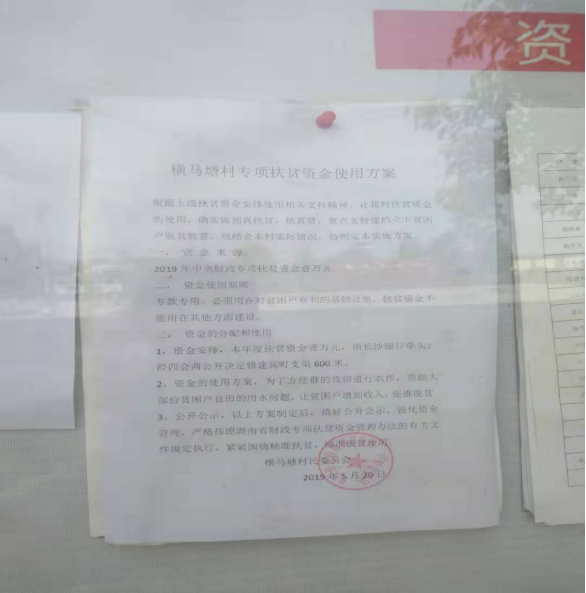 资
横马塘村专项扶贫资金使用方案
根据上级扶贫资金安排使用相关文件精神，让我村扶贫资金
的使用，确实做到真扶贫，扶真贫，重点支持建档立卡贫困
户脱贫致富，现结合本村实际情况，特制定本实施方案。
一、资金来源
2019年中央财政专项扶贫资金壹万元
二、资金使用原则
专款专用。必须用在对贫困户有利的基础设施，扶贫资金不
能用在其他方面建设。
三、资金的分配和使用
1，资金安排，本年度扶贫资金壹万元，由长沙银行牵头
经四会两公开决定修建高町支渠600米。
2，资金的使用方案，为了方便群的良田进行农作，帮助大
部份贫困户良田的用水问题，让贫困户增加收入，促进脱贫
3，公开公示，以上方案制定后，搞好公开公示，强化资金
管理，严格按照湖南省财政专项扶贫资金管理办法的有关文
件规定执行，紧紧围绕精准扶贫，精准脱贫使用。
横马塘村民委员会
2019年5月20日